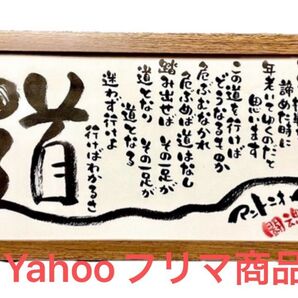 諦めた時に
年老いてゆくのだと
思います
この道を行けば
どうなるものか
危ぶむなかれ
危ぶめば道はなし
踏み出せば その一足が
道となり その一足が
道となる
迷わず行けよ
行けばわかるさ
道
闘魂
Yahooフリマ商品